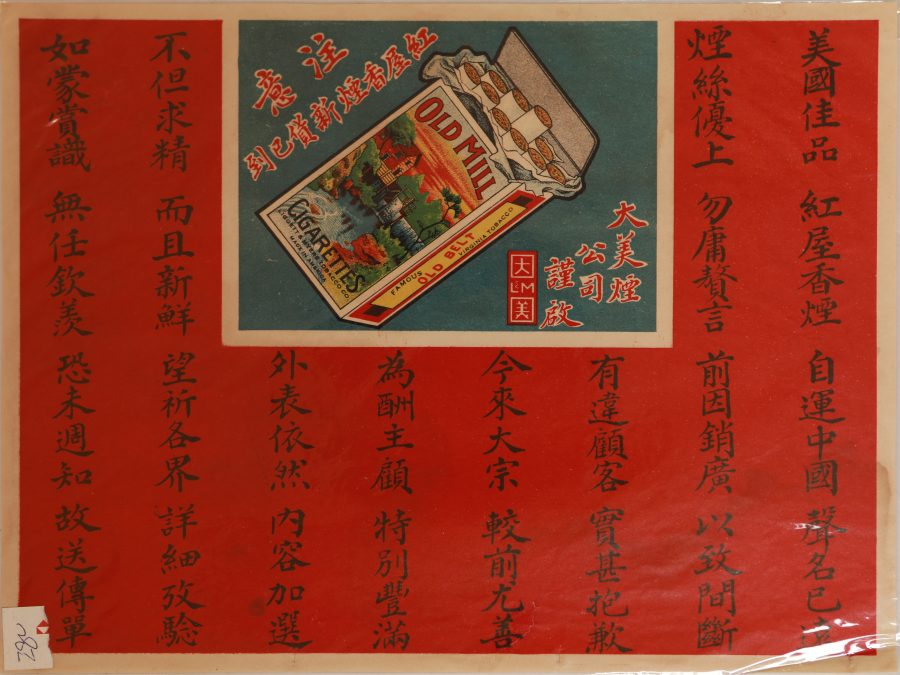 注意
紅屋香煙新貨已到
OLD MILL
CIGARETTES
LIGGETT & MYERS TOBACCO CO.
MADE IN AMERICA
FAMOUS
OLD BELT
VIRGINIA TOBACCO
大美煙
公司
謹啟
大
L&M
美
美國佳品 紅屋香煙 自運中國 聲名已遠
煙絲優上 勿庸贅言 前因銷廣 以致間斷
有違顧客 實甚抱歉
今來大宗 較前尤善
為酬主顧 特別豐滿
外表依然 內容加選
不但求精 而且新鮮 望祈各界 詳細攷驗
如蒙賞識 無任欽羨 恐未週知 故送傳單